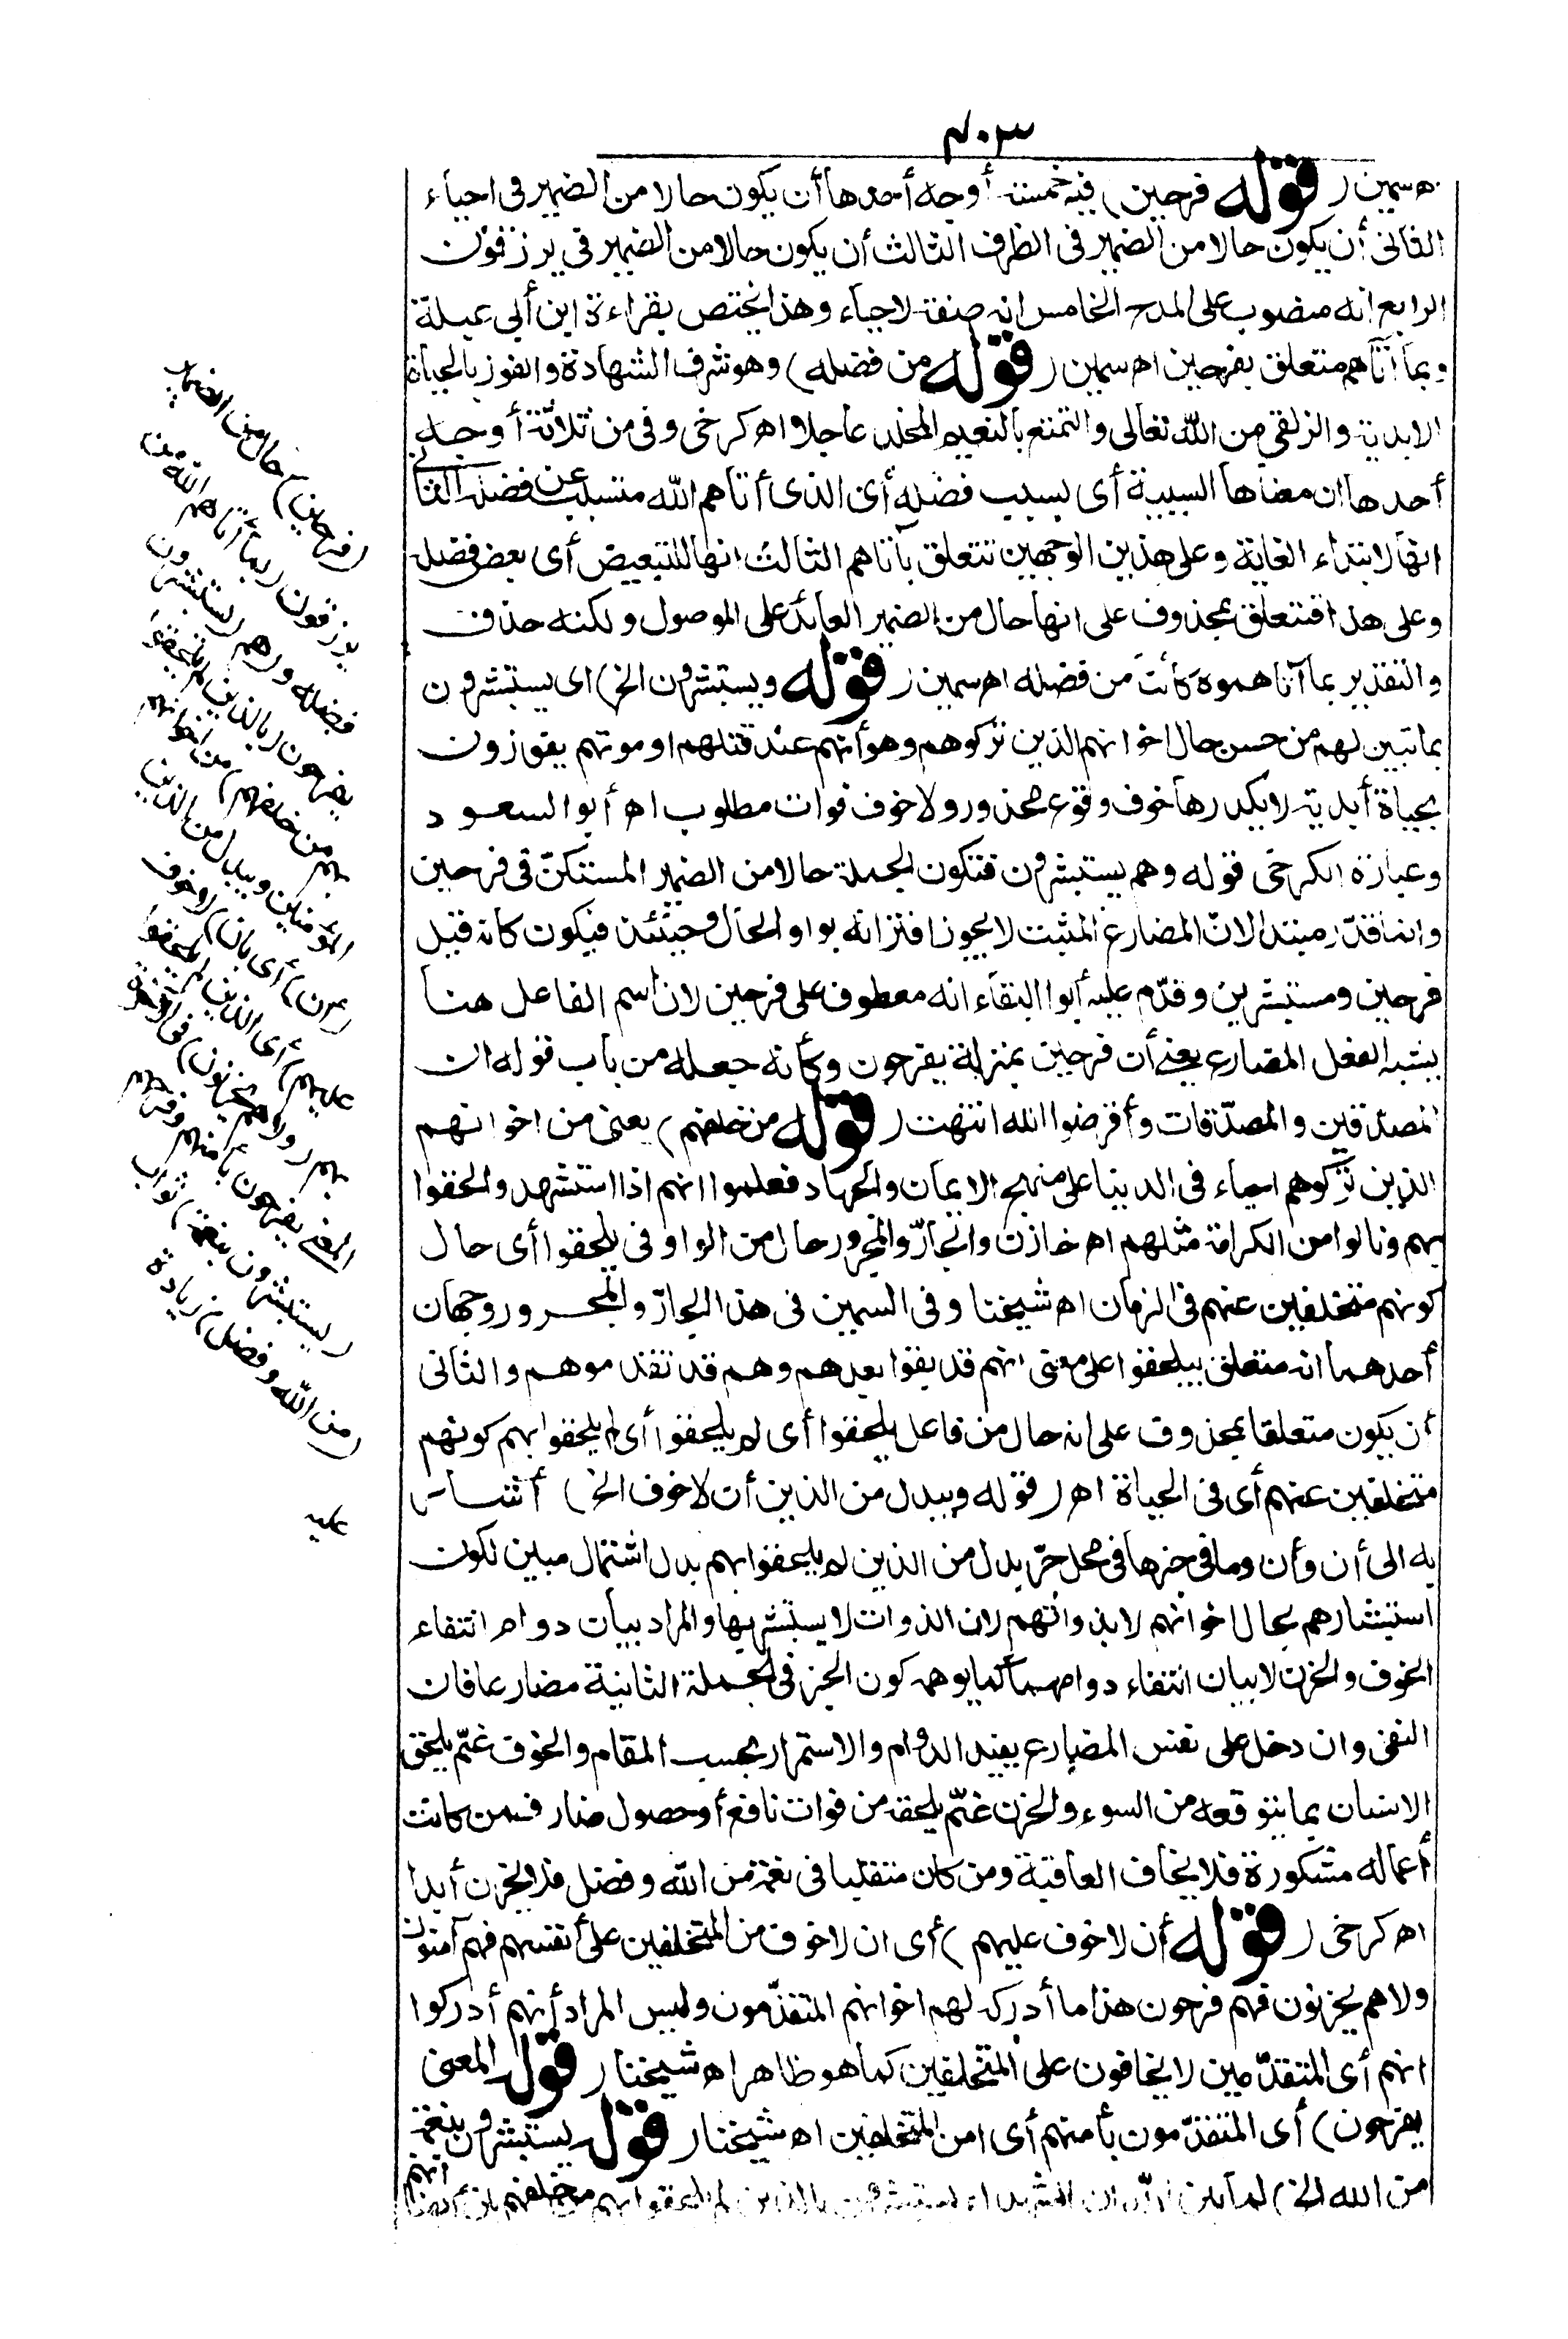 ٤٠٣
اه سمين (قوله فرحين) فيه خمسة أوجه أحدها أن يكون حالا من الضمير فى احياء
الثانى أن يكون حالا من الضمير فى الظرف الثالث أن يكون حالا من الضمير فى يرزقون
الرابع انه منصوب على المدح الخامس انه صفة لاحياء وهذا يختص بقراءة ابن أبي عبلة
وبما آتاهم متعلق بفرحين اه سمين (قوله من فضله) وهو شرف الشهادة والفوز بالحياة
الابدية والزلفى من الله تعالى والتمتع بالنعيم المخلد عاجلا اه كرخى وفى من ثلاثة أوجه
أحدها ان معناها السببية أى بسبب فضله أى الذى أتاهم الله متسبب عن فضله الثانى
انها لابتداء الغاية وعلى هذين الوجهين تتعلق بآتاهم الثالث انها للتبعيض أى بعض فضله
وعلى هذا فتتعلق بمحذوف على انها حال من الضمير العائد على الموصول ولكنه حذف
والتقدير بما آتاهموه كائنا من فضله اه سمين (قوله ويستبشرون الخ) اى يستبشرون
بما تبين لهم من حسن حال اخوانهم الذين تركوهم وهو أنهم عند قتلهم او موتهم يفوزون
بحياة أبدية لا يكدرها خوف وقوع محذور ولا خوف فوات مطلوب اه أبو السعود
وعبارة الكرخى قوله وهم يستبشرون فتكون الجملة حالا من الضمير المستكنّ فى فرحين
وانما قدّر مبتدا لانّ المضارع المثبت لا يجوز اقترانه بواو الحال وحينئذ فيكون كانه قيل
فرحين ومستبشرين وقدّم عليه أبوا البقاء انه معطوف على فرحين لان اسم الفاعل هنا
يشبه الفعل المضارع يعنى أن فرحين بمنزلة يفرحون وكأنه جعله من باب قوله ان
المصدّقين والمصدّقات وأقرضوا الله انتهت (قوله من خلفهم) يعنى من اخوانهم
الذين تركوهم احياء فى الدنيا على منهج الايمان والجهاد فعلموا انهم اذا استشهدوا لحقوا
بهم ونالوا من الكرامة مثلهم اه خازن والجارّ والمجرور حال من الواو فى يلحقوا أى حال
كونهم متخلفين عنهم فى الزمان اه شيخنا وفى السمين فى هذا الجارّ والمجرور وجهان
أحدهما انه متعلق بيلحقوا على معنى انهم قد بقوا بعدهم وهم قد تقدموهم والثانى
أن يكون متعلقا بمحذوف على انه حال من فاعل يلحقوا أى لم يلحقوا أى لم يلحقوا بهم كونهم
متخلفين عنهم أى فى الحياة اه (قوله ويبدل من الذين أن لا خوف الخ) أشار
به الى أن وأن وما فى حيزها فى محل جرّ بدل من الذين لم يلحقوا بهم بدل اشتمال مبين لكون
استبشارهم بحال اخوانهم لا بذواتهم لان الذوات لا يستبشر بها والمراد بيان دوام انتفاء
الخوف والحزن لا بيان انتفاء دوامهما كما يوهمه كون الخبر فى الجملة الثانية مضارعا فان
النفى وان دخل على نفس المضارع يفيد الدوام والاستمرار بحسب المقام والخوف غمّ يلحق
الانسان بما يتوقعه من السوء والحزن غمّ يلحقه من فوات نافع أو حصول ضار فمن كانت
أعماله مشكورة فلا يخاف العاقبة ومن كان متقلبا فى نعمة من الله وفضل فلا يحزن أبدا
اه كرخى (قوله أن لا خوف عليهم) أى ان لا خوف من المتخلفين على أنفسهم فهم آمنون
ولا هم يحزنون فهم فرحون هذا ما أدركه لهم اخوانهم المتقدّمون وليس المراد أنهم أدركوا
انهم أى المتقدّمين لا يخافون على المتخلفين كما هو ظاهر اه شيخنا (قوله المعنى
يفرحون) أى المتقدّمون بأمنهم أى امن المتخلفين اه شيخنا (قوله يستبشرون بنعمة
من الله الخ) لما بين الله ان الشهداء يستبشرون بالذين لم يلحقوا بهم من خلفهم بين أنهم أيضا
(فرحين) حال من الضمير
يرزقون (بما أتاهم الله من
فضله و) هم (يستبشرون)
يفرحون (بالذين لم يلحقوا
بهم من خلفهم) من اخوانهم
المؤمنين ويبدل من الذين
(أن) أى بأن (لا خوف
عليهم) أى الذين لم يلحقوا
بهم (ولا هم يحزنون) فى الآخرة
المعنى يفرحون بأمنهم وفرحهم
(يستبشرون بنعمة) ثواب
(من الله وفضل) زيادة
عليه